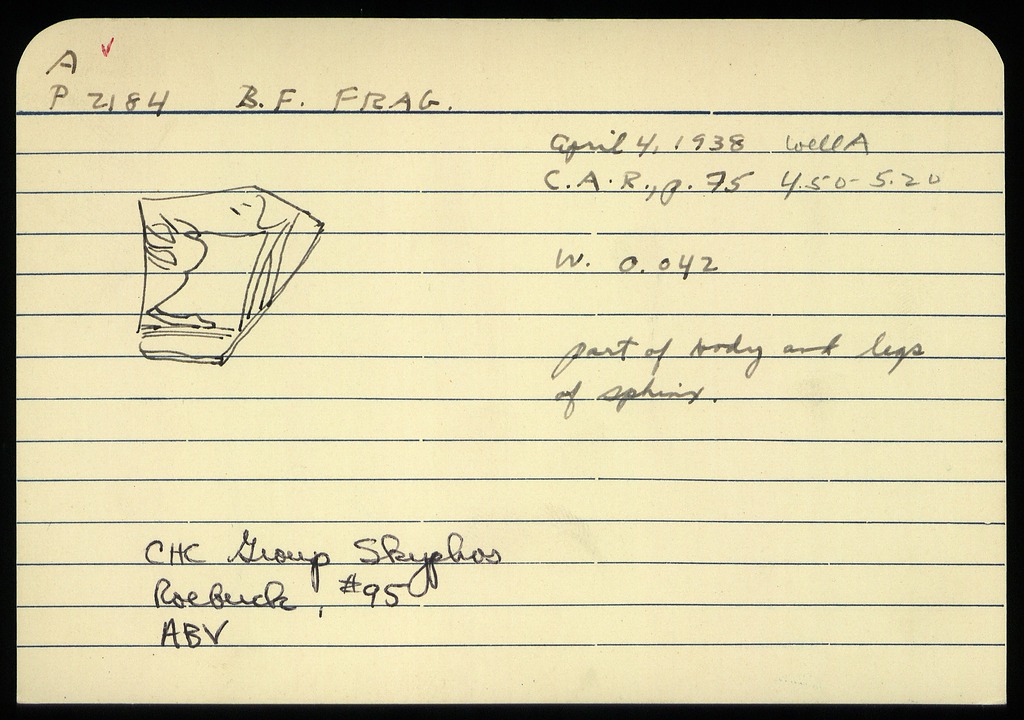 A ✓
P 2184 B.F. FRAG.
April 4, 1938 Well A
C.A.R., p. 75 4.50-5.20
W. 0.042
part of body and legs
of sphinx.
CHC Group Skyphos
Roebuck, #95
ABV